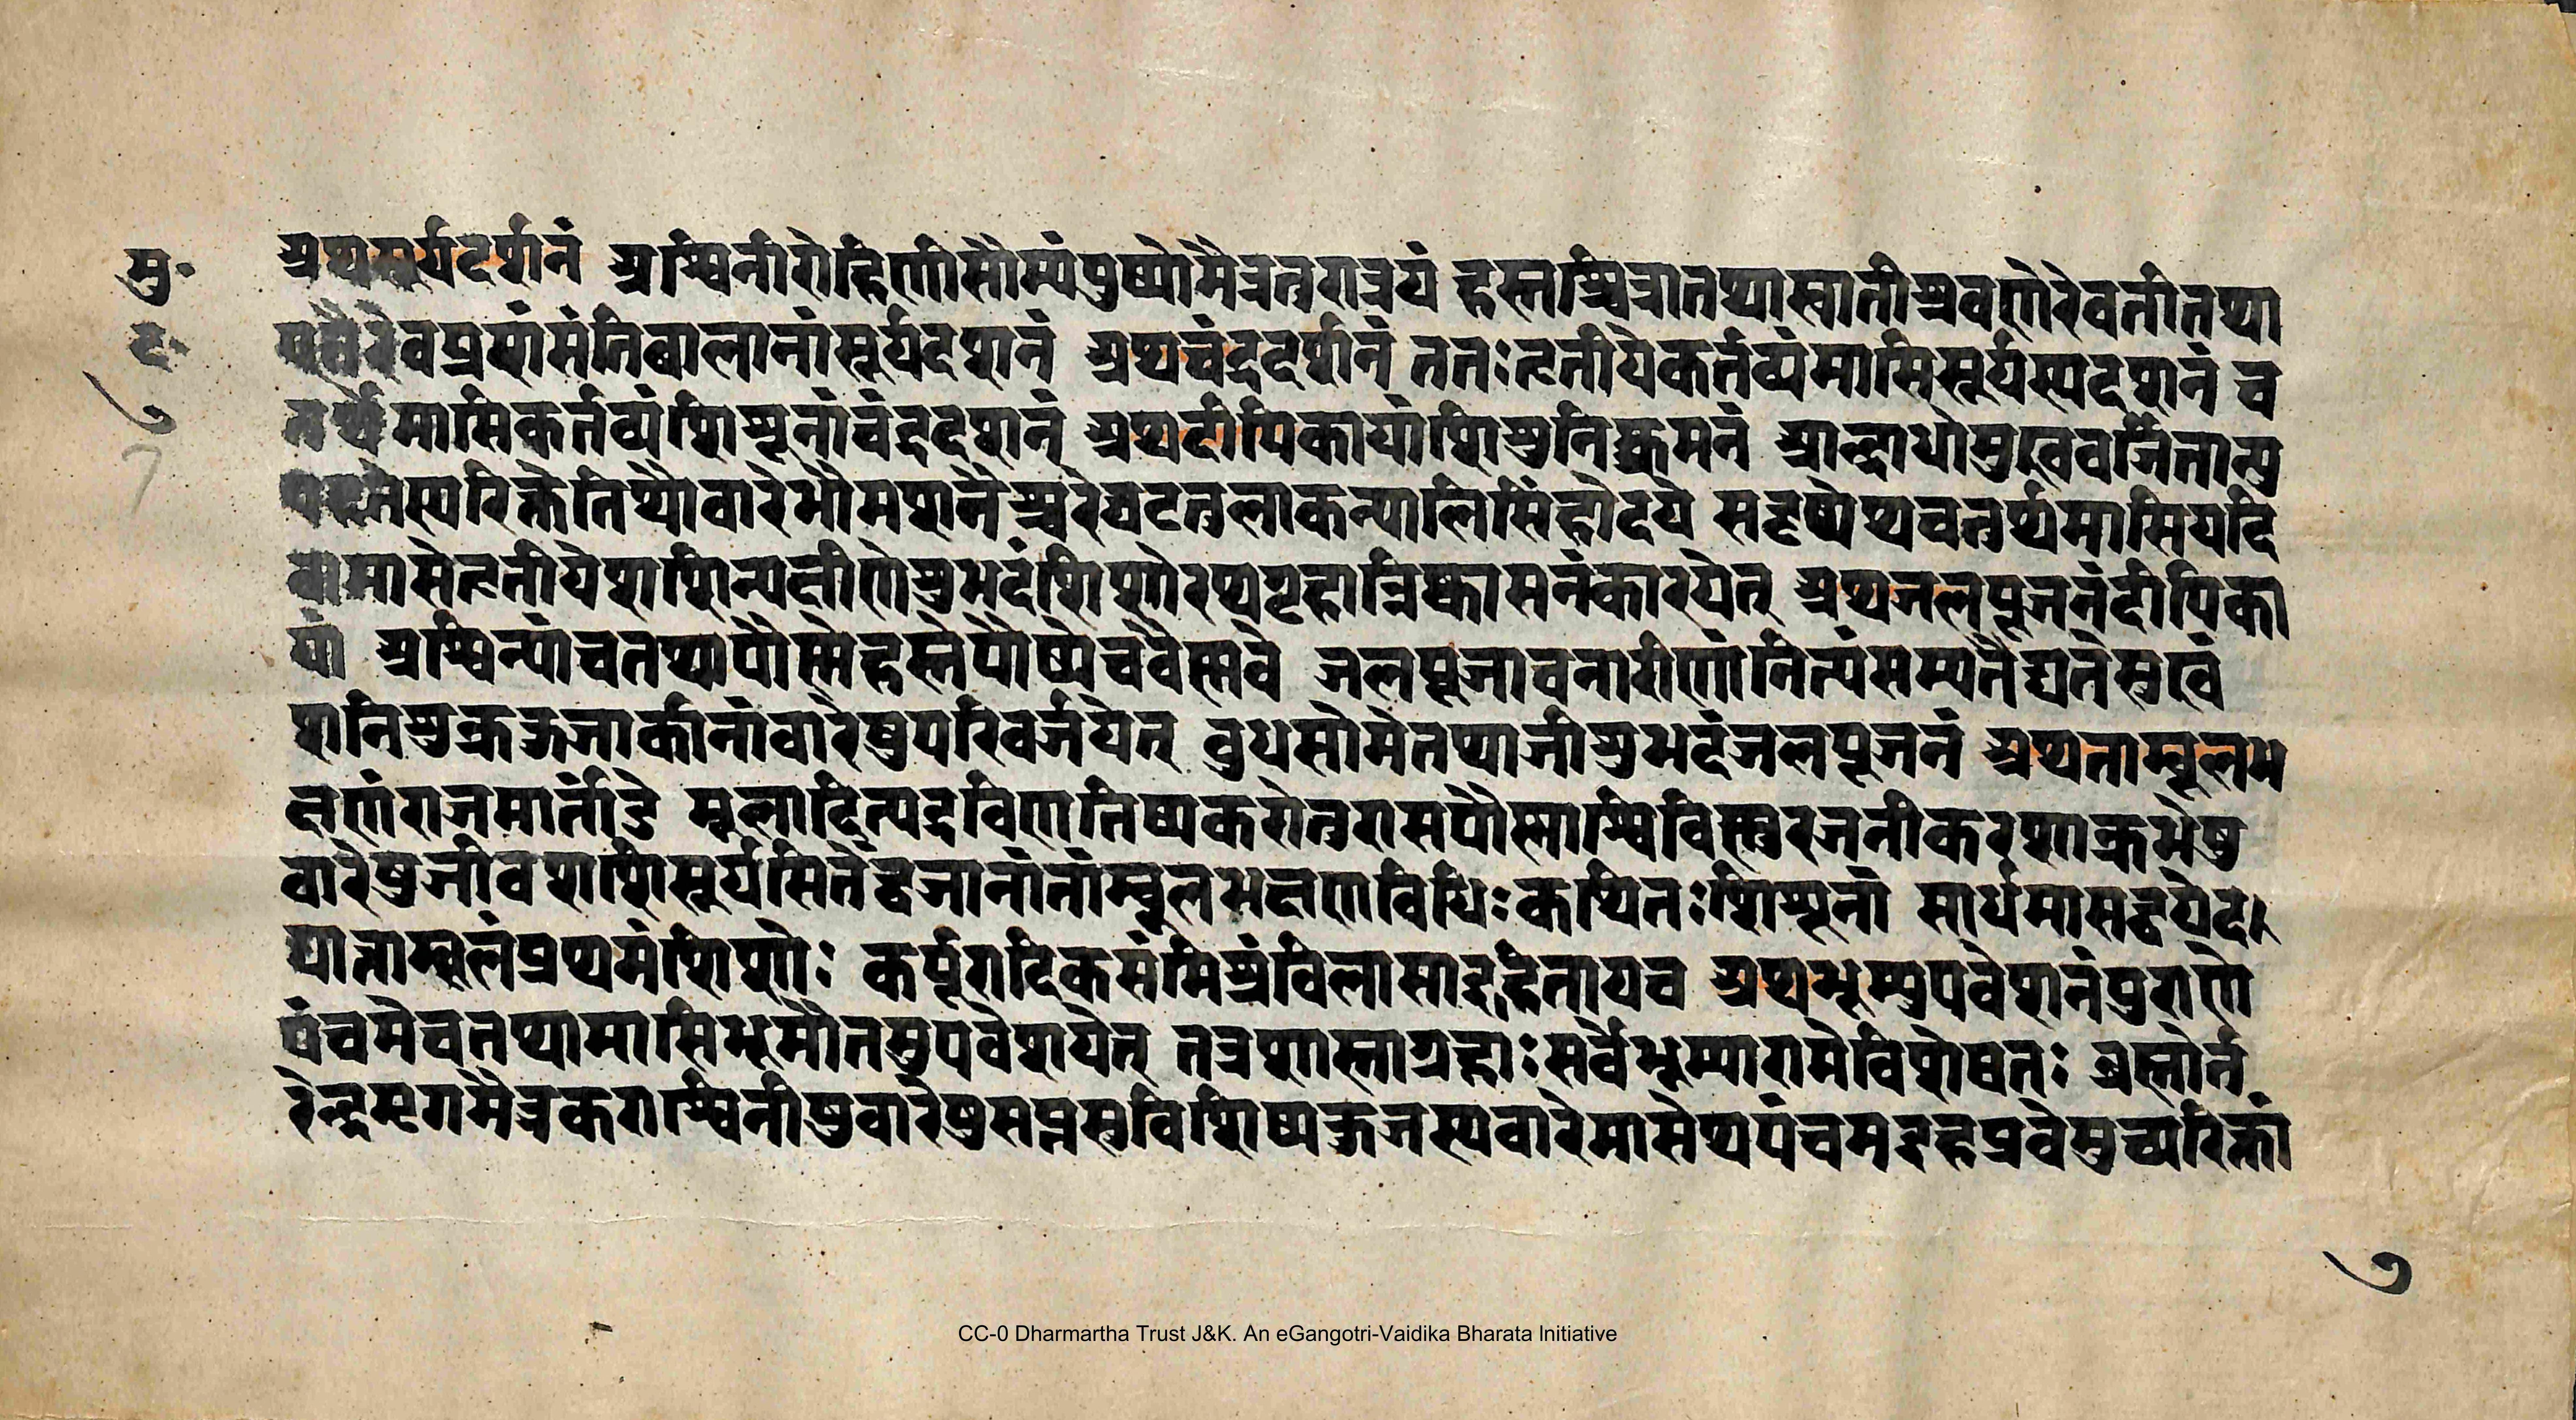 मु॰
अथसूर्यदर्शनं अश्विनीरोहिणीसौम्यंपुष्योमैत्रत्तरात्रयं हस्तश्चित्रातथास्वातीश्रवणोरेवतीतथा
द॰
एतैरेवप्रशंसंतिबालानांसूर्यदर्शनं अथचंद्रदर्शनं ततःतृतीयेकर्तव्यंमासिसूर्यस्यदर्शनं च
७
तुर्थेमासिकर्तव्यंशिशूनांचंद्रदर्शनं अथदीपिकायांशिशुनिष्क्रमनं
7
रिक्तेतिथौवारेभौमशनैश्चरेघटतुलाकन्यालिसिंहोदये चतुर्थमासियदि
वामासेतृतीयेशशिन्यक्षीणेशुभदंशिशोरथगृहान्निष्कासनंकारयेत् अथजलपूजनंदीपिका
यां अश्विन्यांचतथा जलपूजाचनारीणांनित्यंसम्पतैद्यतेसुखं
शनिशुक्रकुजार्कानांवारेषुपरिवर्जयेत् बुधसोमेतथाजीशुभदंजलपूजनं अथताम्बूलभ
क्षणंराजमार्तंडे मूलादित्यद्रविणतिष्यकरोत्तरासपौस्नाश्विविस्नुरजनीकरशक्रभेषु
वारेषुजीवशशिसूर्यसितेंद्वजानांतांम्बूलभक्षणविधिःकथितःशिशूनां सार्धमासद्वयेद।
द्यात्ताम्बूलंप्रथमंशिशोः कर्पूरादिकसंमिश्रंविलासाद्रहितायच अथभूम्युपवेशनंपुराणे
पंचमेचतथामासिभूमौतमुपवेशयेत् तत्रशास्ताग्रहाःसर्वेभूम्यारामेविशेषतः
रेन्दुमृगमैत्रकराश्विनीषुवारेषु मासेथपंचम
७
CC-0 Dharmartha Trust J&K. An eGangotri-Vaidika Bharata Initiative